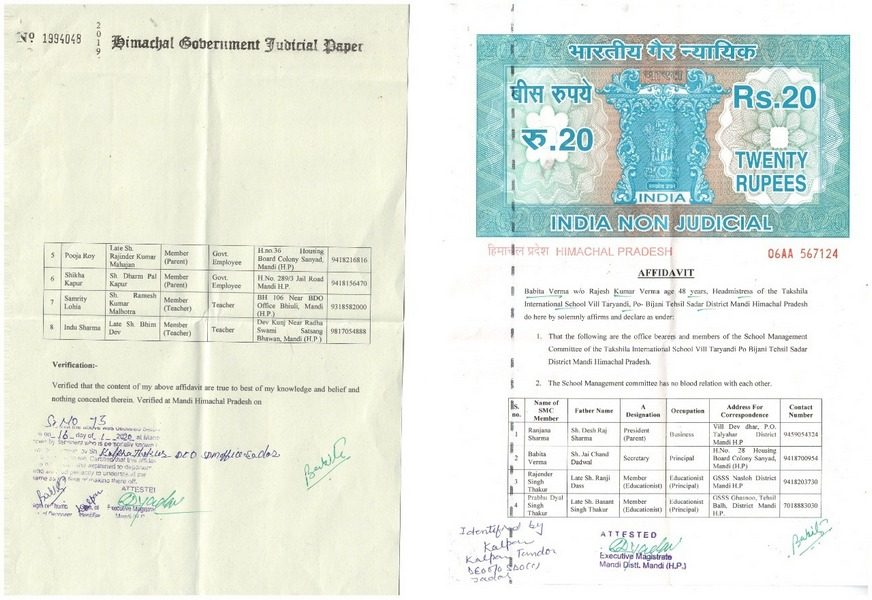 No 1994048
2019
Himachal Government Judicial Paper
5 Pooja Roy Late Sh. Rajinder Kumar Mahajan Member (Parent) Govt. Employee H.no.36 Housing Board Colony Sanyad, Mandi (H.P) 9418216816
6 Shikha Kapur Sh Dharm Pal Kapur Member (Parent) Govt. Employee H.No. 289/3 Jail Road Mandi H.P. 9418156470
7 Samrity Lohia Sh. Ramesh Kumar Malhotra Member (Teacher) Teacher BH 106 Near BDO Office Bhiuli, Mandi (H.P.) 9318582000
8 Indu Sharma Late Sh Bhim Dev Member (Teacher) Teacher Dev Kunj Near Radha Swami Satsang Bhawan, Mandi (H.P.) 9817054888
Verification:-
Verified that the content of my above affidavit are true to best of my knowledge and belief and
nothing concealed therein. Verified at Mandi Himachal Pradesh on
on 16 day of 1 2020 at Mandi
ATTESTED
Executive Magistrate
Babita
भारतीय गैर न्यायिक
बीस रुपये
रु.20
Rs.20
TWENTY
RUPEES
INDIA
INDIA NON JUDICIAL
हिमाचल प्रदेश HIMACHAL PRADESH
06AA 567124
AFFIDAVIT
Babita Verma w/o Rajesh Kumar Verma age 48 years, Headmistress of the Takshila
International School Vill Taryandi, Po- Bijani Tehsil Sadar District Mandi Himachal Pradesh
do here by solemnly affirms and declare as under:
1. That the following are the office bearers and members of the School Management
Committee of the Takshila International School Vill Taryandi Po Bijani Tehsil Sadar
District Mandi Himachal Pradesh.
2. The School Management committee has no blood relation with each other.
S. no. Name of SMC Member Father Name A Designation Occupation Address For Correspondence Contact Number
1 Ranjana Sharma Sh. Desh Raj Sharma President (Parent) Business Vill Dev dhar, P.O. Talyahar District Mandi H.P 9459054324
2 Babita Verma Sh. Jai Chand Dadwal Secretary Principal H.No. 28 Housing Board Colony Sanyad, Mandi (H.P) 9418700954
3 Rajender Singh Thakur Late Sh. Ranji Dass Member (Educationist) Educationist (Principal) GSSS Nasloh District Mandi H.P 9418203730
4 Prabhu Dyal Singh Thakur Late Sh. Basant Singh Thakur Member (Educationist) Educationist (Principal) GSSS Ghatnoo, Tehsil Balh, District Mandi H.P. 7018883030
Identified by
Kalpana
ATTESTED
Executive Magistrate
Mandi Distt. Mandi (H.P.)
Babita